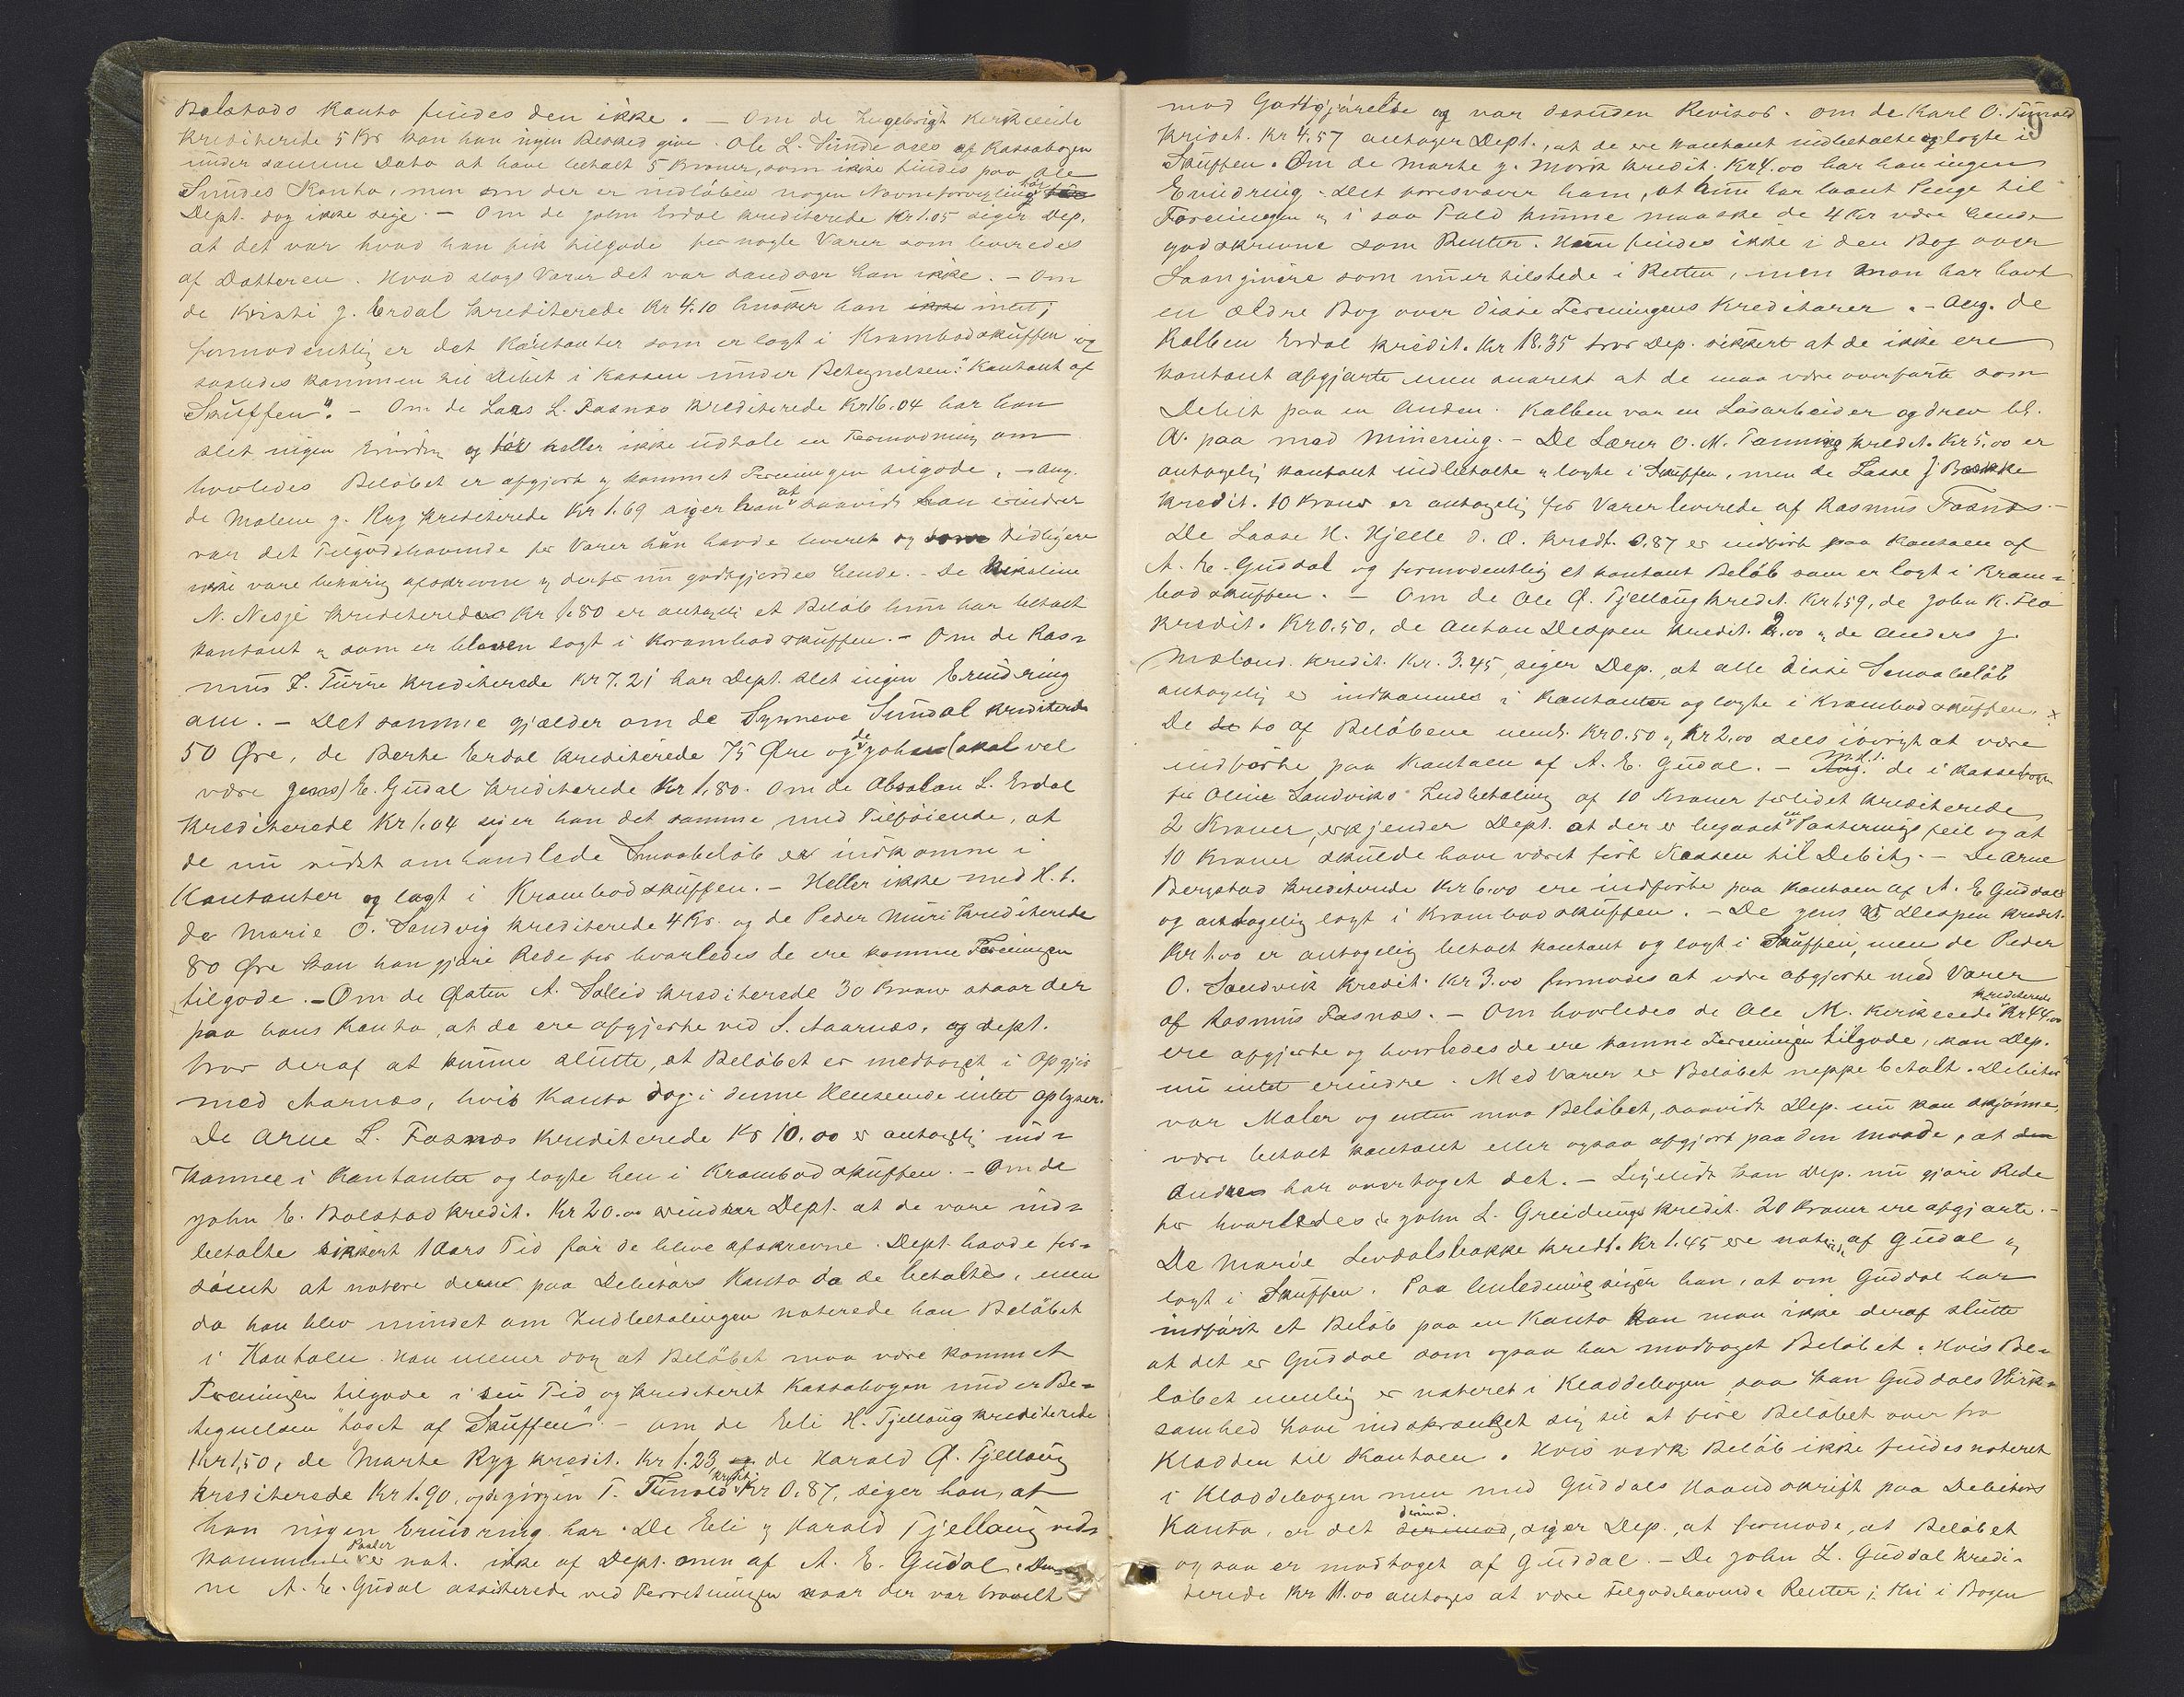 Bolstads Konto findes den ikke. — Om de Ingebrigt Kirkeeide
krediterede 5 Kr kan han ingen Besked give. Ole L. Sunde sees af Kassabogen
under samme Dato at have betalt 5 Kroner, som ikke findes paa Ole
Sundes Konto, men om der er indløben nogen Navneforvexling tør
Dept. dog ikke sige. — Om de John Erdal krediterede Kr 1.05 siger Dep.
at det var hvad han fik tilgode for nogle Varer som leveredes
af Datteren. Hvad slags Varer det var sandser han ikke. — Om
de Kristi J. Erdal krediterede Kr 4.10 husker han ikke intet;
formodentlig er det Kontanter som er lagt i Krambodskuffen og
saaledes kommen til Debit i Kassen under Betegnelsen: "Kontant af
Skuffen". — Om de Lars L. Fosnæs krediterede Kr 16.04 har han
slet ingen Erindring og tør heller ikke udtale en Formodning om
hvorledes Beløbet er afgjort og kommet Foreningen tilgode. — Ang.
de Malene J. Ryg krediterede Kr 1.69 siger han at saavidt han erindrer
var det Tilgodehavende for Varer hun havde leveret og som tidligere
ikke vare behørig afskrevne og derfor nu godtgjordes hende. — De Nikoline
N. Nesje krediterede Kr 1.80 er antagelig et Beløb hun har betalt
kontant og som er bleven lagt i Krambodskuffen. — Om de Ras-
mus J. Turre krediterede Kr 7.21 har Dept. slet ingen Erindring
om. — Det samme gjælder om de Synneve Sundal krediterede
50 Øre, de Berte Erdal krediterede 75 Øre og de John (skal vel
være Jens) E. Gudal krediterede Kr 1.80. Om de Absalon L. Erdal
krediterede Kr 1.04 siger han det samme med Tilføiende, at
de nu sidst omhandlede Smaabeløb er indkomne i
Kontanter og lagt i Krambodskuffen. — Heller ikke med H. t.
de Marie O. Sandvig krediterede 4 Kr. og de Peder Muri krediterede
80 Øre kan han gjøre Rede for hvorledes de ere komne Foreningen
tilgode. — Om de Østen A. Sollid krediterede 30 Kroner staar der
paa hans Konto, at de ere afgjorte ved S. Aarnæs, og Dept.
tror deraf at kunne slutte, at Beløbet er medtaget i Opgjør
med Aarnæs, hvis Konto dog i denne Henseende intet oplyser.
De Arne L. Fosnæs krediterede Kr 10.00 er antagelig ind-
komne i Kontanter og lagte hen i Krambodskuffen. — Om de
John E. Bolstad kredit. Kr 20.00 erindrer Dept. at de vare ind-
betalte sikkert 1 Aars Tid før de bleve afskrevne. Dept. havde for-
sømt at notere denne paa Debitors Konto da de betaltes, men
da han blev mindet om Indbetalingen noterede han Beløbet
i Kontoen. Han mener dog at Beløbet maa være kommet
Foreningen tilgode i sin Tid og krediteret Kassabogen under Be-
tegnelsen "taget af Skuffen". — Om de Eli H. Fjellaug krediterede
Kr 1,50, de Marte Ryg kredit. Kr 1.23, de Harald Ø. Fjellaug
krediterede Kr 1.90, og de Jørgen T. Tunold kredit. Kr 0.87, siger han, at
han ingen Erindring har. De Eli og Harald Fjellaug ved-
kommende Poster er not. ikke af Dept. men af A. E. Gudal. Den-
ne A. E. Gudal assisterede ved Forretningen naar der var travelt
mod Godtgjørelse og var desuden Revisor. Om de Karl O. Tunold
kridet. Kr 4.57 antager Dept., at de ere kontant indbetalte og lagte i
Skuffen. Om de Marte J. Mork kredit. Kr 4.00 har han ingen
Erindring. Det foresvæver ham, at hun har laant Penge til
Foreningen og i saa Fald kunne maaske de 4 Kr være hende
godskrevne som Renter. Hun findes ikke i den Bog over
Laangivere som nu er tilstede i Retten, men man har havt
en ældre Bog over disse Foreningens Kreditorer. — Ang. de
Kolben Erdal kredit. Kr 18.35 tror Dep. sikkert at de ikke ere
kontant afgjorte men snarest at de maa være overførte som
Debit paa en Anden. Kolben var en Løsarbeider og drev bl.
A. paa med Minering. — De Lærer O. M. Tonning kredit. Kr 5.00 er
antagelig kontant indbetalte og lagte i Skuffen, men de Lasse J Bakke
kredit. 10 Kroner er antagelig for Varer leverede af Rasmus Fosnæs. —
De Lasse H. Hjelle d. Æ. kredt. 0.87 er indført paa Kontoen af
A. E. Guddal og formodentlig et kontant Beløb som er lagt i Kram-
bodskuffen. — Om de Ole Ø. Fjellaug kredit. Kr 1.59, de John K. Flo
kredit. Kr 0.50, de Anton Despen kredit. 2.00 og de Anders J.
Moland kredit. Kr. 3.45, siger Dep., at alle disse Smaabeløb
antagelig er indkomne i Kontanter og lagte i Krambodskuffen. x
De de to af Beløbene nemt. Kr 0.50 og Kr 2.00 sees iøvrigt at være
indførte paa Kontoen af A. E. Gudal. — Ang. m. H. t. de i Kassabogen
for Oline Sandviks Indbetaling af 10 Kroner forlidet krediterede
2 Kroner, erkjender Dept. at der er begaaet en Posteringsfeil og at
10 Kroner skulde have været ført Kassen til Debit. — De Arne
Bergstad krediterede Kr 6.00 ere indførte paa Kontoen af A. E. Guddal
og antagelig lagt i Krambodskuffen. — De Jens Despen kredit.
Kr 1.00 er antagelig betalt kontant og lagt i Skuffen, men de Peder
O. Sandvik kredit. Kr 3.00 formodes at være afgjorte med Varer
af Rasmus Fosnæs. — Om hvorledes de Ole M. Kirkeeide krediterede Kr 44.00
ere afgjorte og hvorledes de ere komne Foreningen tilgode, kan Dep.
nu intet erindre. Med Varer er Beløbet neppe betalt. Debitor
var Maler og enten maa Beløbet, saavidt Dep. nu kan skjønne,
være betalt kontant eller ogsaa afgjort paa den Maade, at den
Anden har overtaget det. — Ligelidt kan Dep. nu gjøre Rede
for hvorledes de John L. Greidungs kredit. 20 Kroner ere afgjorte. —
De Marie Lerdalsbakke kredt. Kr 1.45 ere noterede af Gudal og
lagt i Skuffen. Paa Anledning siger han, at om Guddal har
indført et Beløb paa en Konto kan man ikke deraf slutte
at det er Guddal som ogsaa har modtaget Beløbet. Hvis Be-
løbet nemlig er noteret i Kladdebogen, saa kan Guddals Virk-
somhed have indskrænket sig til at føre Beløbet over fra
Kladden til Kontoen. Hvis vedk Beløb ikke findes noteret
i Kladdebogen men med Guddals Haandskrift paa Debitors
Konto, er det derimod, siger Dep., at formode, at Beløbet
ogsaa er modtaget af Guddal. — De John L. Guddal kredi-
terede Kr 11.00 antages at være tilgodehavende Renter; thi i Bogen